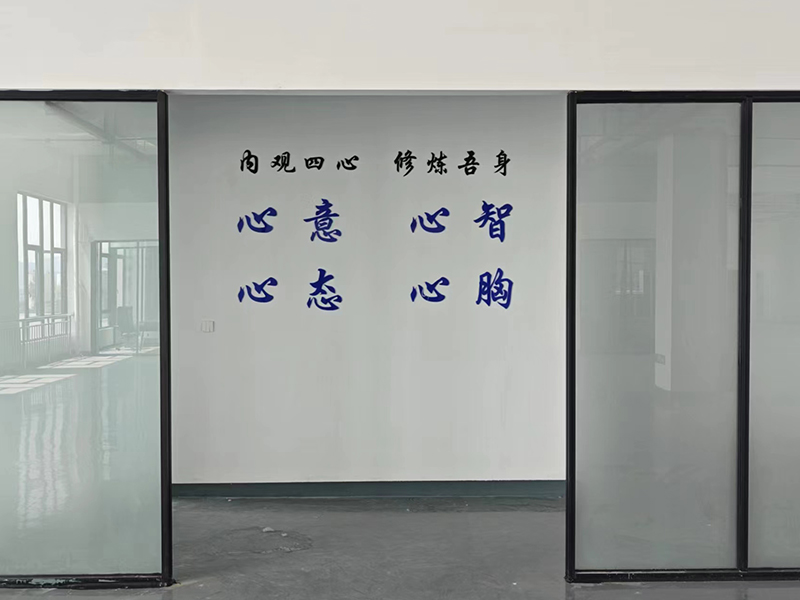 内观四心 修炼吾身
心意 心智
心态 心胸